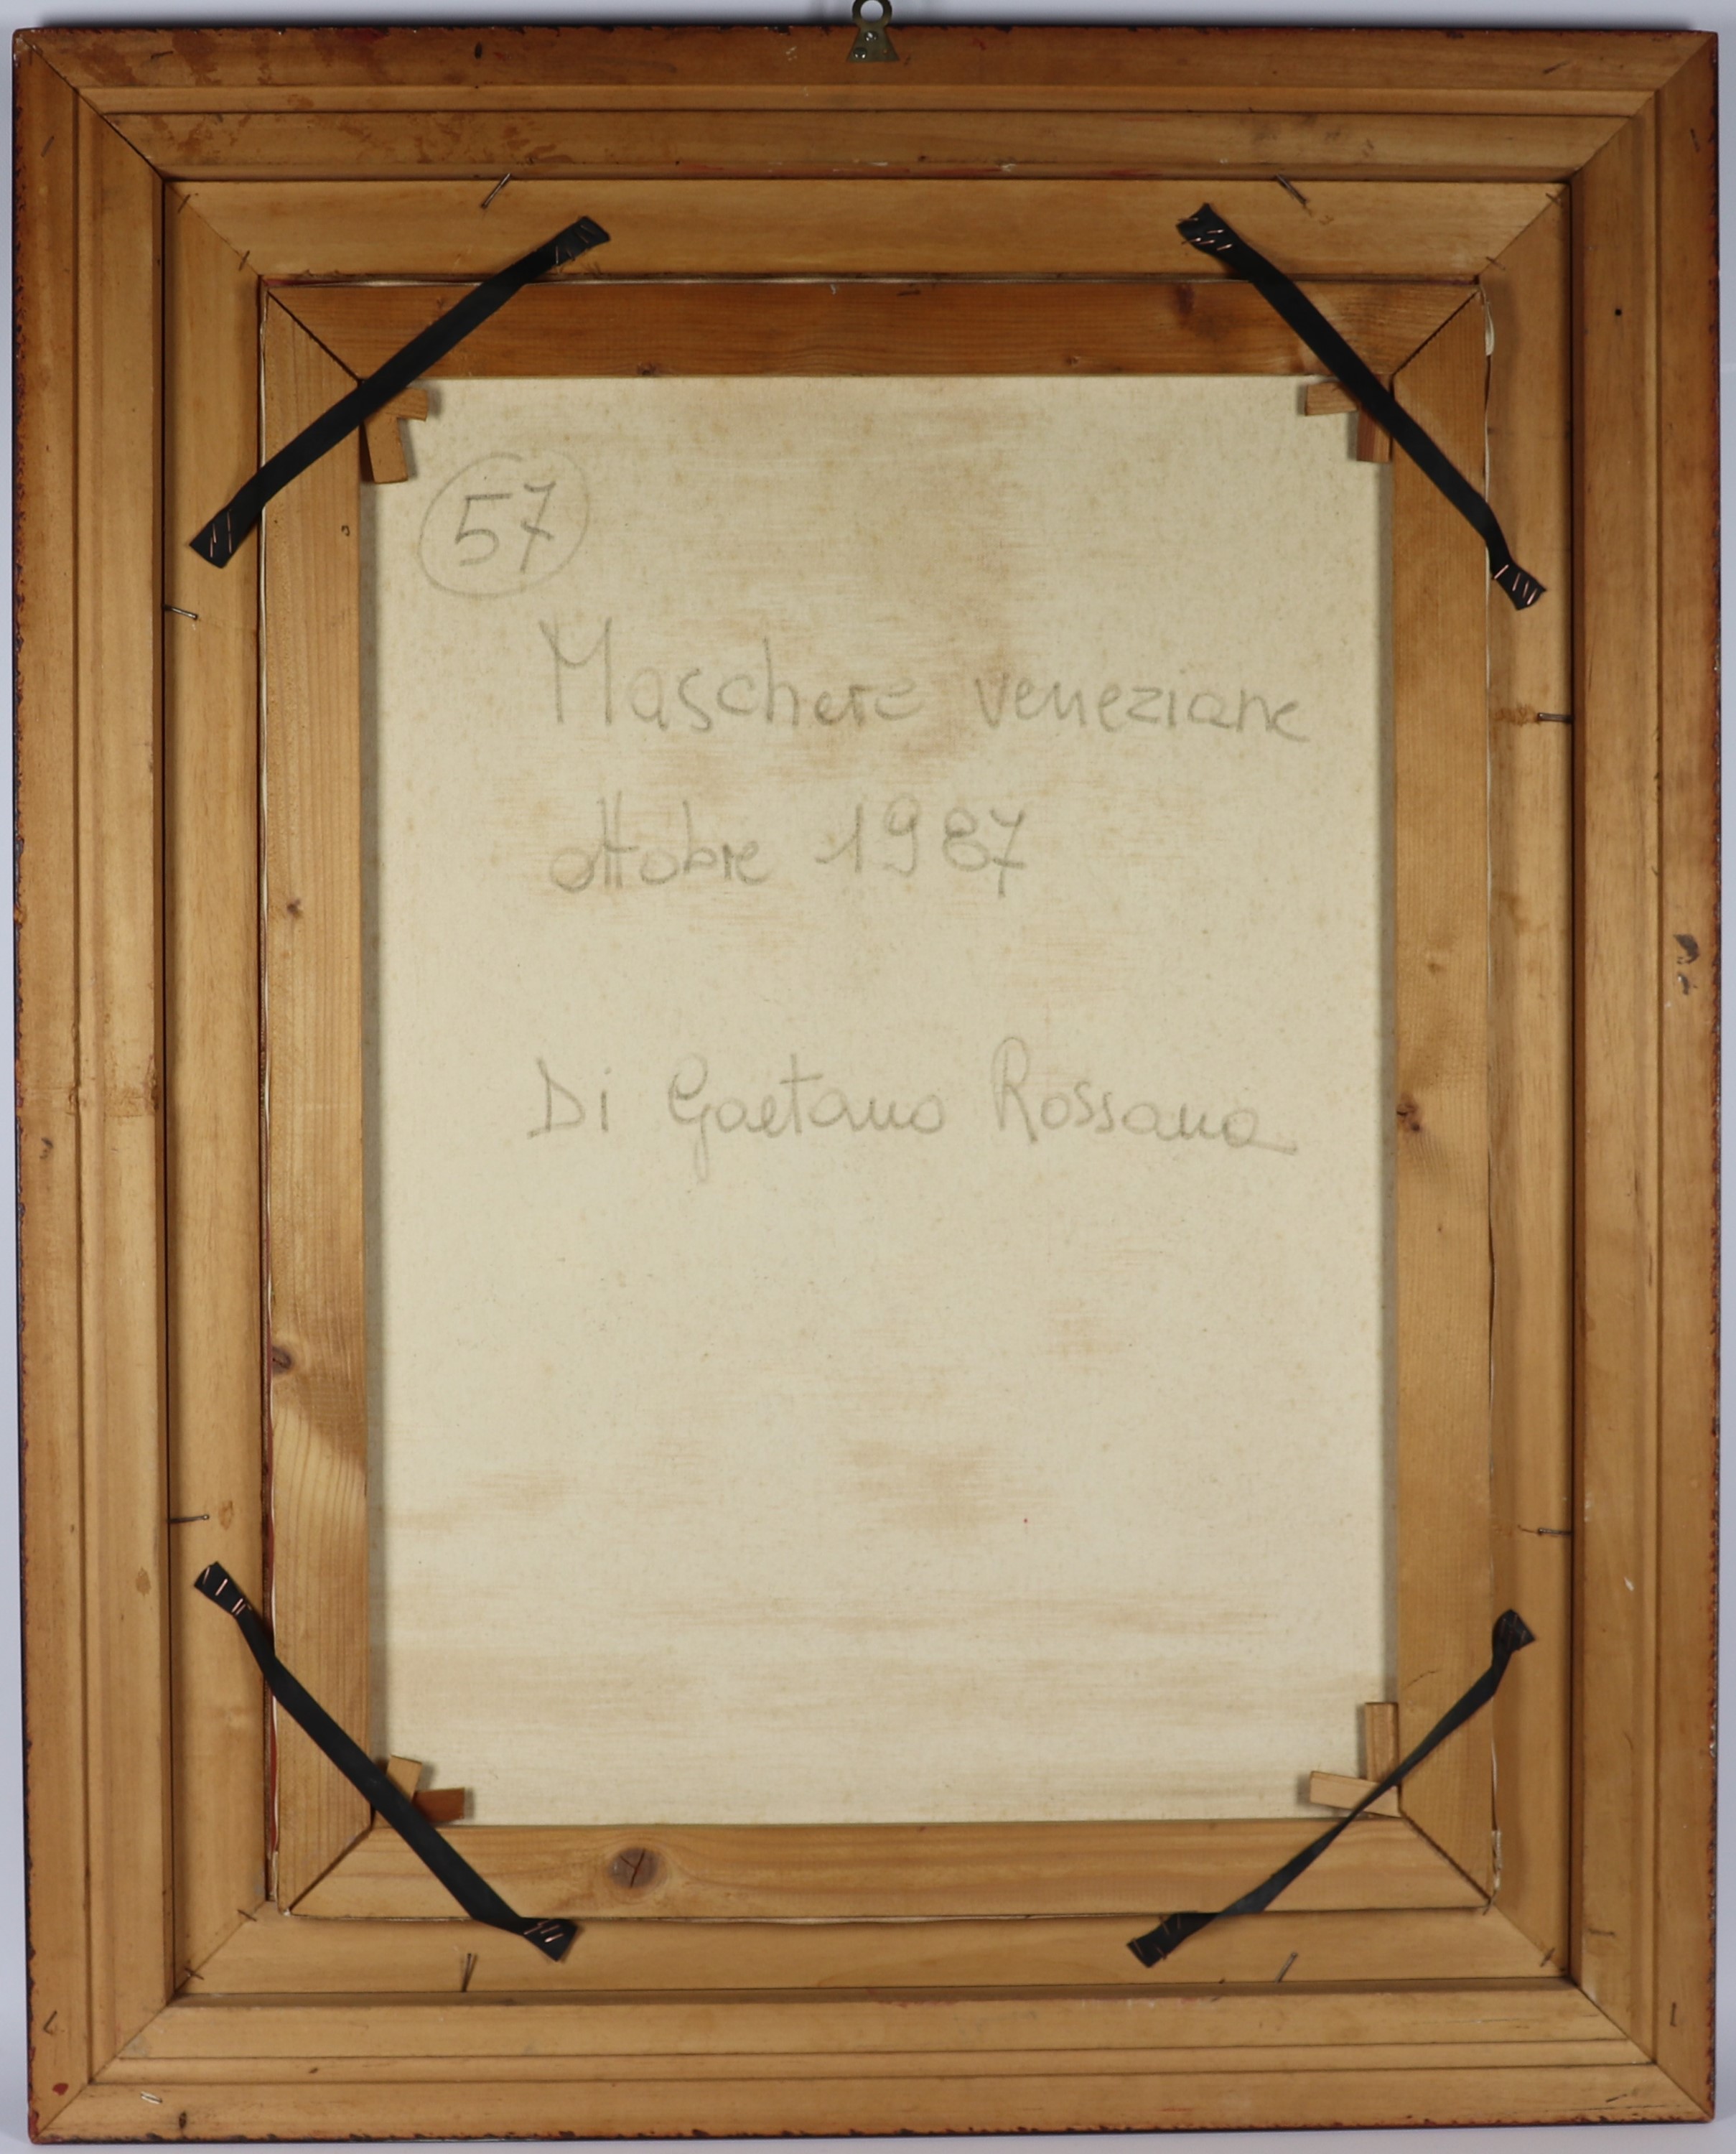 57
Maschere veneziane
ottobre 1987
Di Gaetano Rossana